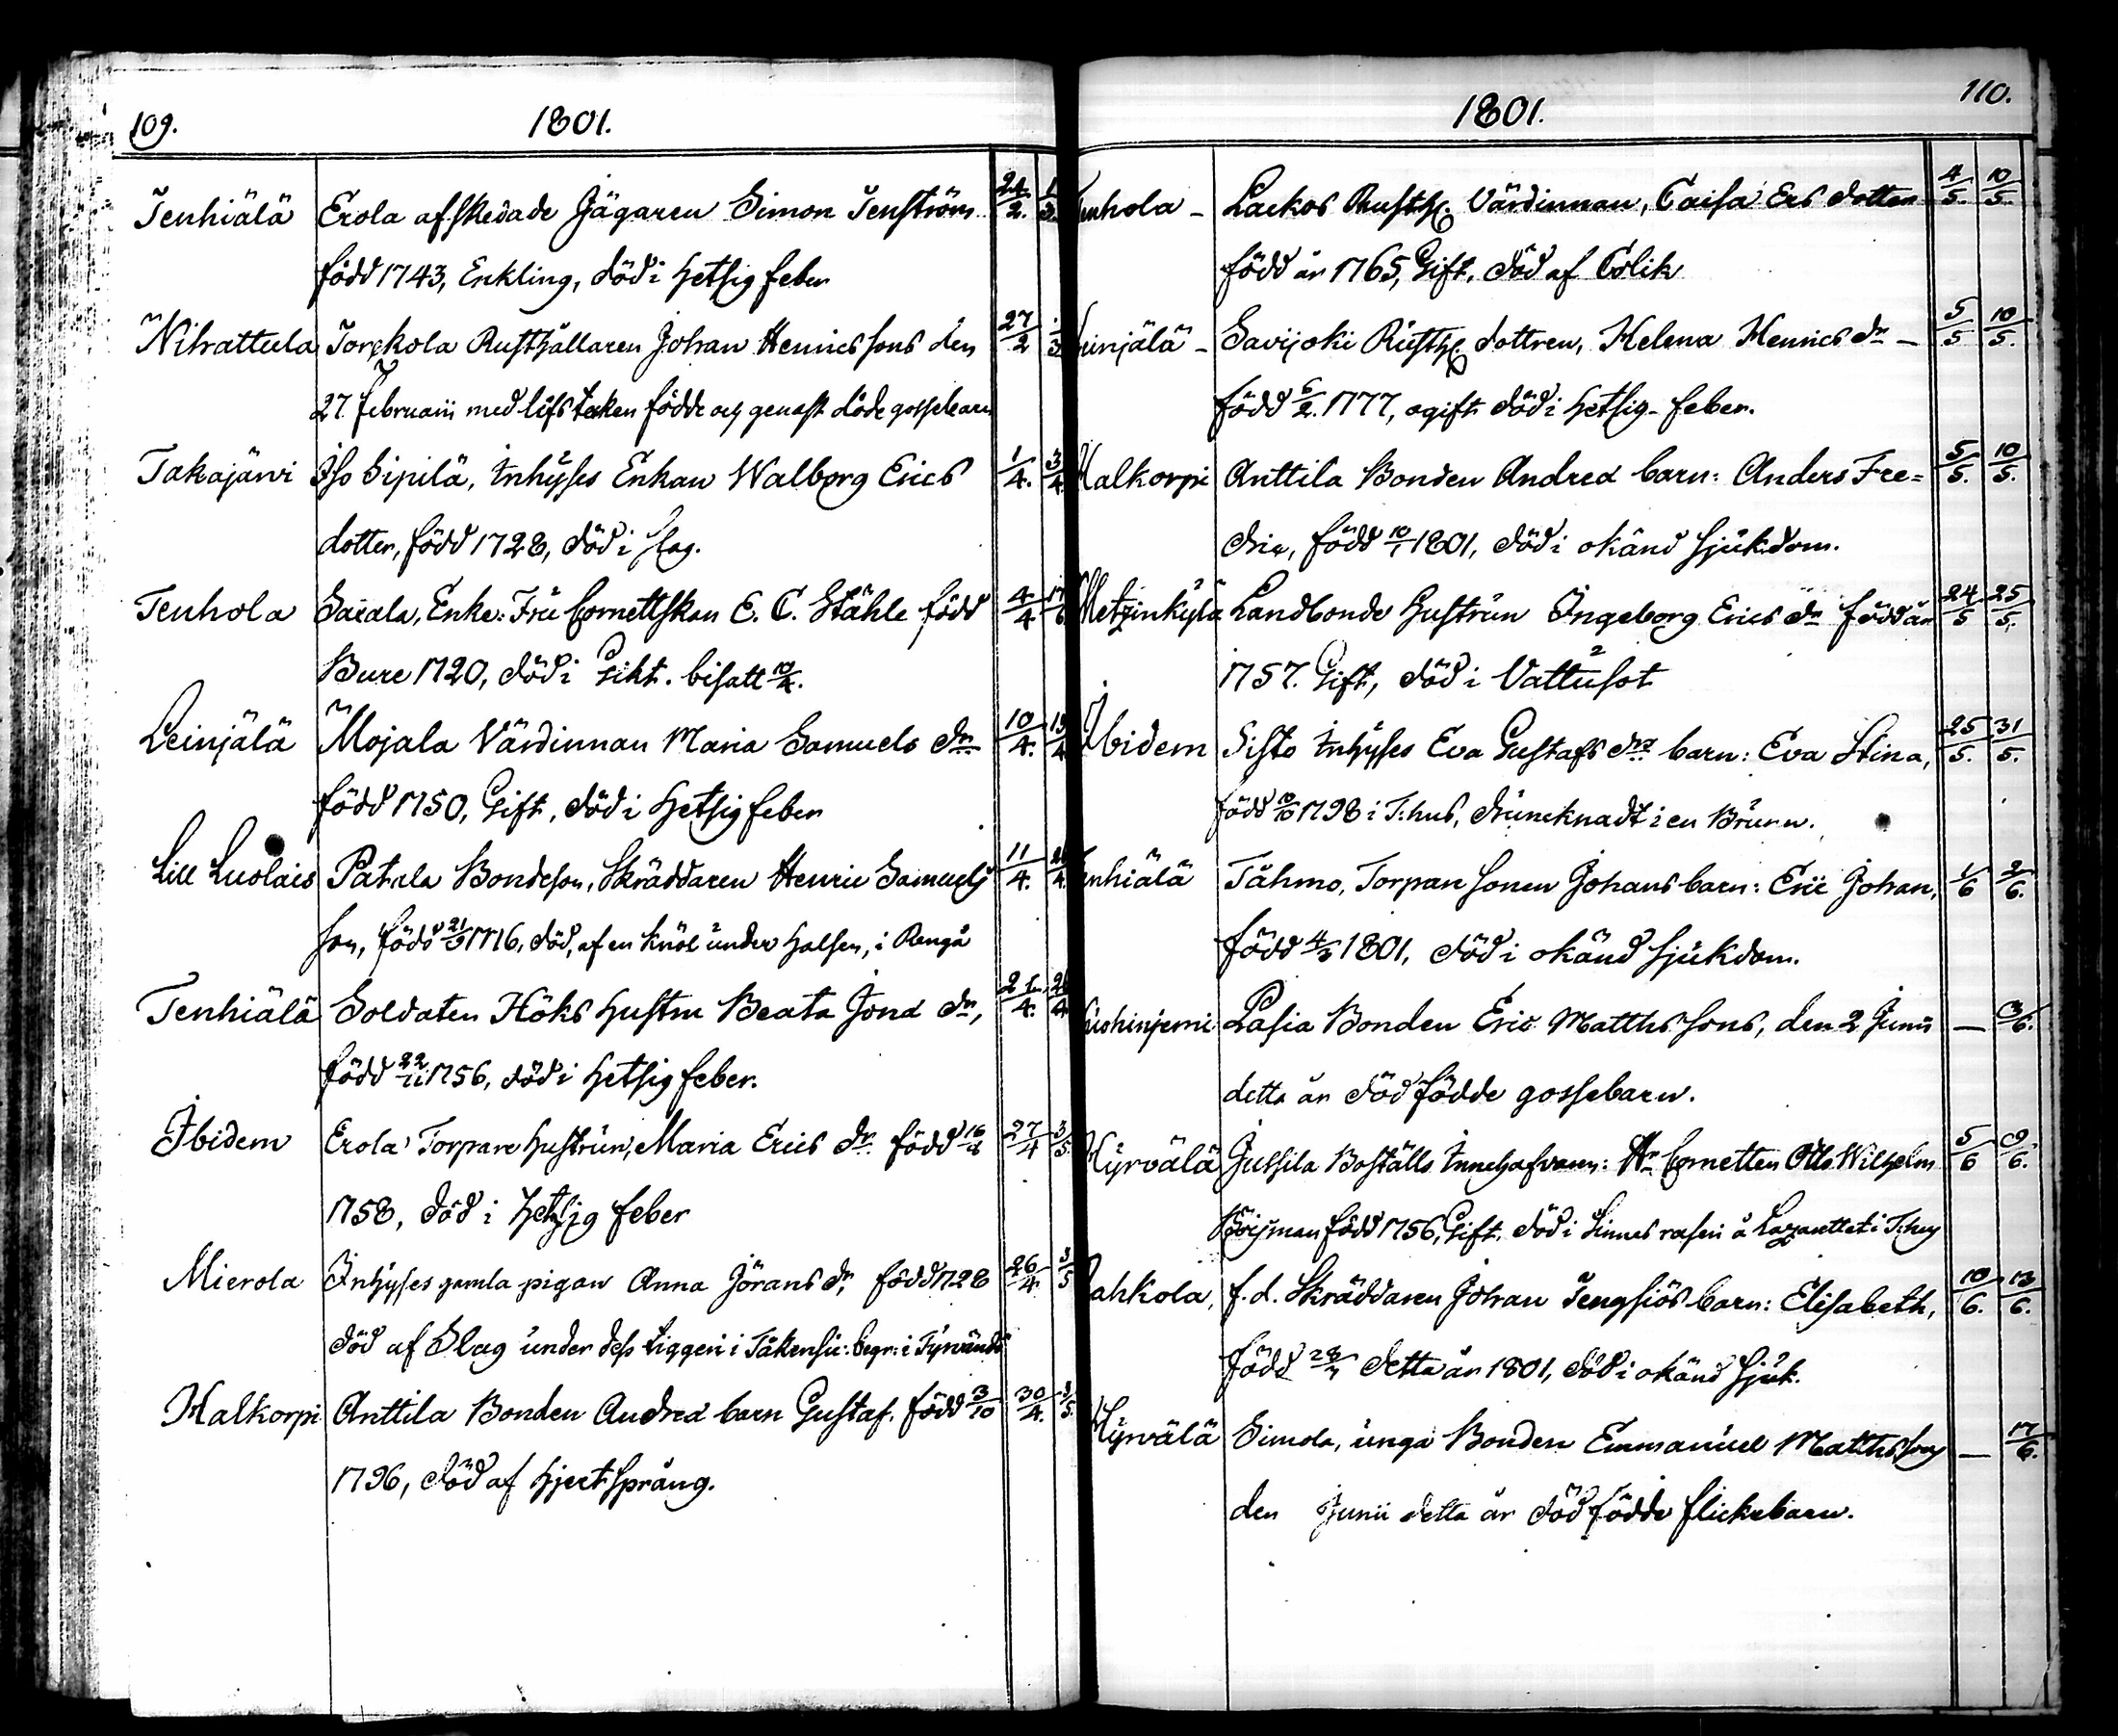 109.
1801.
Tenhiälä Erola afskedade Jägaren Simon Tenström 24/2. 1/3.
född 1743, Enkling, död i hetsig feber
Nihattula Torckola Rusthållaren Johan Henricssons den 27/2
27 februarii med lifstecken födde och genast döde gossebarn
Takajärvi Iso Sipilä, Inhyses Enkan Walborg Erics 1/4. 3/4
dotter, född 1728, död i slag.
Tenhola Saxala, Enke: Fru Cornettskan E. C. Ståhle född 4/4
Bure 1720, död i Gikt. bisatt 10/4.
Leinjälä Mojala Värdinnan Maria Samuels dr 10/4.
född 1750, Gift, död i hetsig feber
Lill Luolais Patala Bondeson, Skräddaren Henric Samuels 11/4.
son, född 21/9 1716, död, af en knöl under halsen, i Rengå
Tenhiälä Soldaten Höks hustru Beata Jona dr,
född 22/11 1756, död i hetsig feber.
Ibidem Erola Torpare hustrun, Maria Erics dr. född 27/4 3/5
1758, död i hetsig feber
Mierola Inhyses gamla pigan Anna Jörans dr, född 1728 26/4. 3/5
död af Slag under dess tiggeri i Påkensu: begr: i Tyrvändö
Halkorpi Anttila Bonden Andrea barn Gustaf. född 3/10 30/4. 3/5.
1796, död af hjertsprång.
110.
1801.
Tenhola - Lackos Rusth. Värdinnan, Caisa Ers dotter 4/5. 10/5.
född år 1765, Gift, död af Colik
Leinjälä - Savijoki Rusth. dottren, Helena Henrics dr - 5/5 10/5.
född 6/2. 1777, ogift död i hetsig feber.
Halkorpi Anttila Bonden Andrea barn: Anders Fre= 5/5. 10/5.
dric, född 10/1 1801, död i okänd sjukdom.
Metzinkylä Landbonde hustrun Ingeborg Erics dr född år 24/5 25/5.
1757. Gift, död i Vattusot
Ibidem Sisto Inhyses Eva Gustafs drs barn: Eva Stina, 25/5. 31/5.
född 10/10 1798 i T:hus, druncknadt i en Brunn.
Tenhiälä Tähmo, Torpare sonen Johans barn: Eric Johan, 1/6 2/6.
född 4/3 1801, död i okänd sjukdom.
Lusiа Bonden Eric Matthssons, den 2 Junii - 3/6.
detta år död födde gossebarn.
Hyrvälä Jussila Boställs Innehafvaren: Hr Cornetten Otto Wilhelm 5/6 9/6.
Böijman född 1756, Gift, död i Sinnes raseri å Lazarettet i T:hus
Pahkola, f. d. Skräddaren Johan Tengsiös barn: Elisabeth, 10/6. 13/6.
född 28/3 detta år 1801, död i okänd sjuk.
Hyrvälä Simola, unga Bonden Emmanuel Matthssons - 17/6.
den Junii detta år död födde flickebarn.